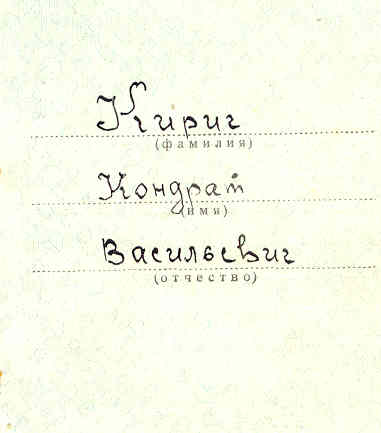 Кирич
(фамилия)
Кондрат
(имя)
Васильевич
(отчество)